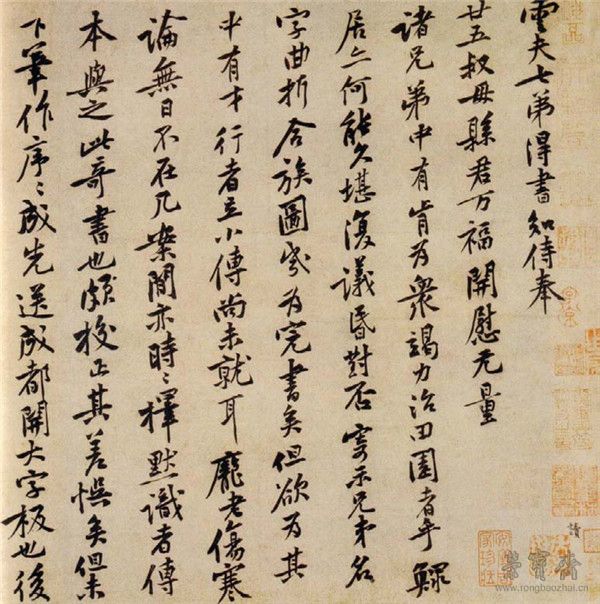 雲夫七弟得書知侍奉
廿五叔母縣君万福開慰无量
諸兄弟中有肯為衆竭力治田園者乎鰥
居亦何能久堪復議昏對否寄示兄弟名
字曲折合族圖幾為完書矣但欲為其
中有才行者立小傳尚未就耳龐老傷寒
論無日不在几案間亦時〻擇默識者傳
本與之此奇書也頗校正其差悮矣但未
下筆作序〻成先送成都開大字板也後
榮寶齋
www.rongbaozhai.cn